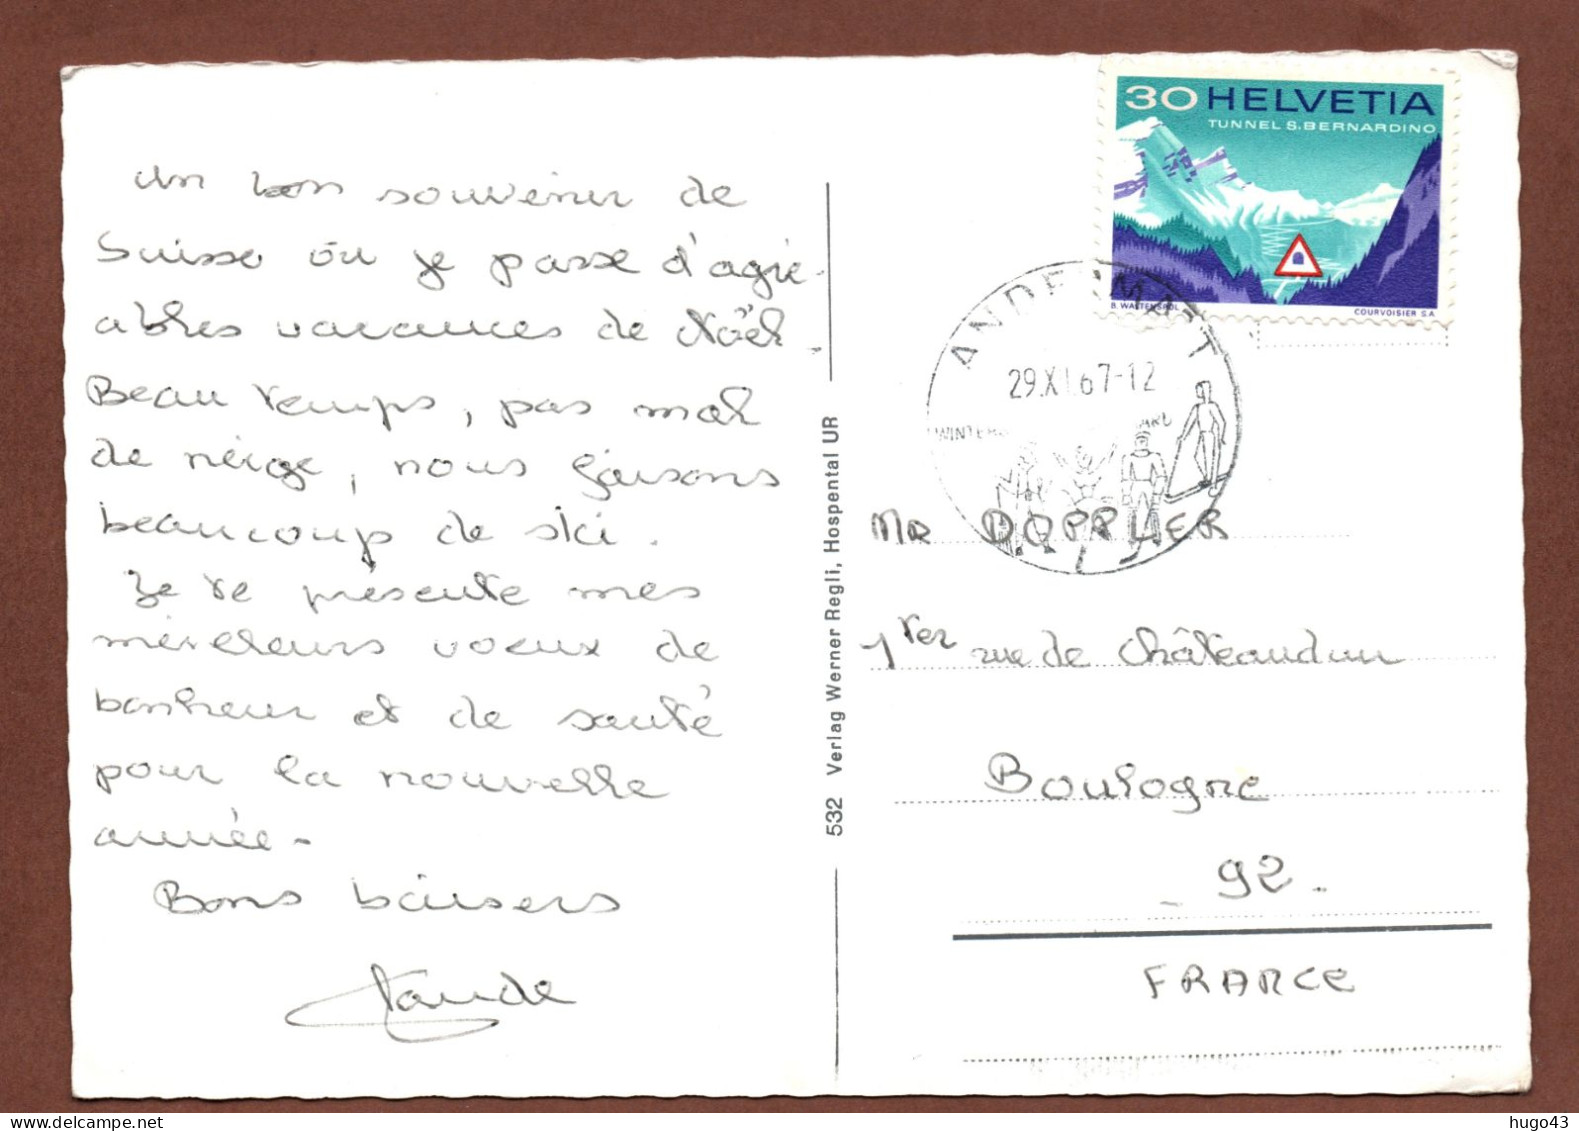 Un bon souvenir de
Suisse où je passe d'agré-
ables vacances de Noël.
Beau temps, pas mal
de neige, nous faisons
beaucoup de ski.
Je te présente mes
meilleurs voeux de
bonheur et de santé
pour la nouvelle
année.
Bons baisers
Claude
532 Verlag Werner Regli, Hospental UR
30 HELVETIA
TUNNEL S.BERNARDINO
B. WALTENSPÜL COURVOISIER S.A.
ANDERMATT
29.XI.67-12
MR DOPPLER
1ter rue de Châteaudun
Boulogne
- 92 -
FRANCE
hugo43